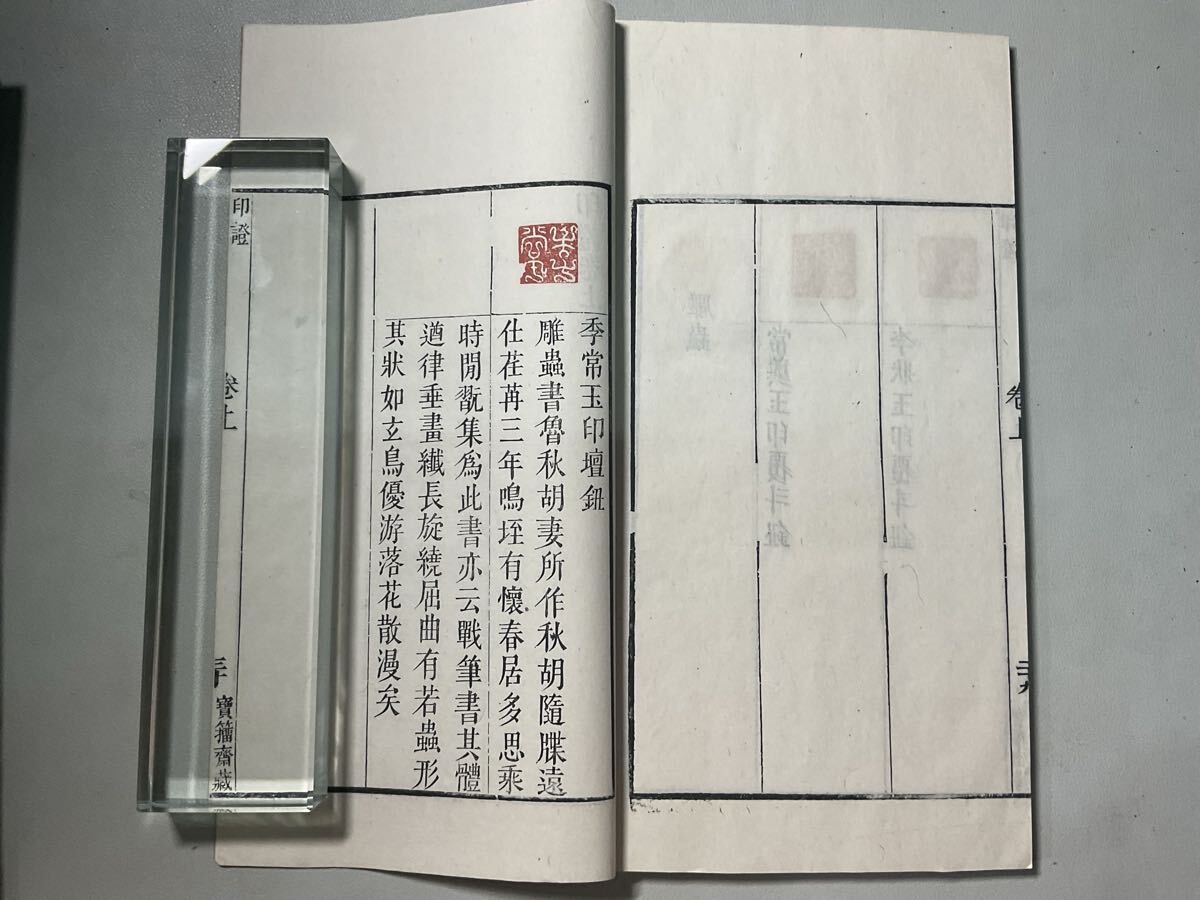 季常玉印壇鈕
雕蟲書魯秋胡妻所作秋胡隨牒遠
仕荏苒三年鳴垤有懷春居多思乘
時閒翫集爲此書亦云戰筆書其體
遒律垂畫纖長旋繞屈曲有若蟲形
其狀如玄鳥優游落花散漫矣
印證
卷上
三十
寶籀齋藏
卷上